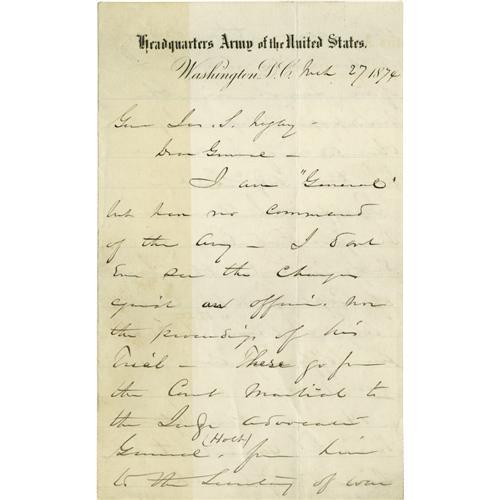 Headquarters Army of the United States.
Washington, D.C. Mch 27 1874
Gen Jas. S. Negley -
Dear General -
I am "General"
but have no command
of the Army - I dont
Even see the Charges
against an officer. nor
the proceedings of his
Trial - These go from
the Court Martial to
the Judge Advocate
General (Holt) from him
to the Secretary of War